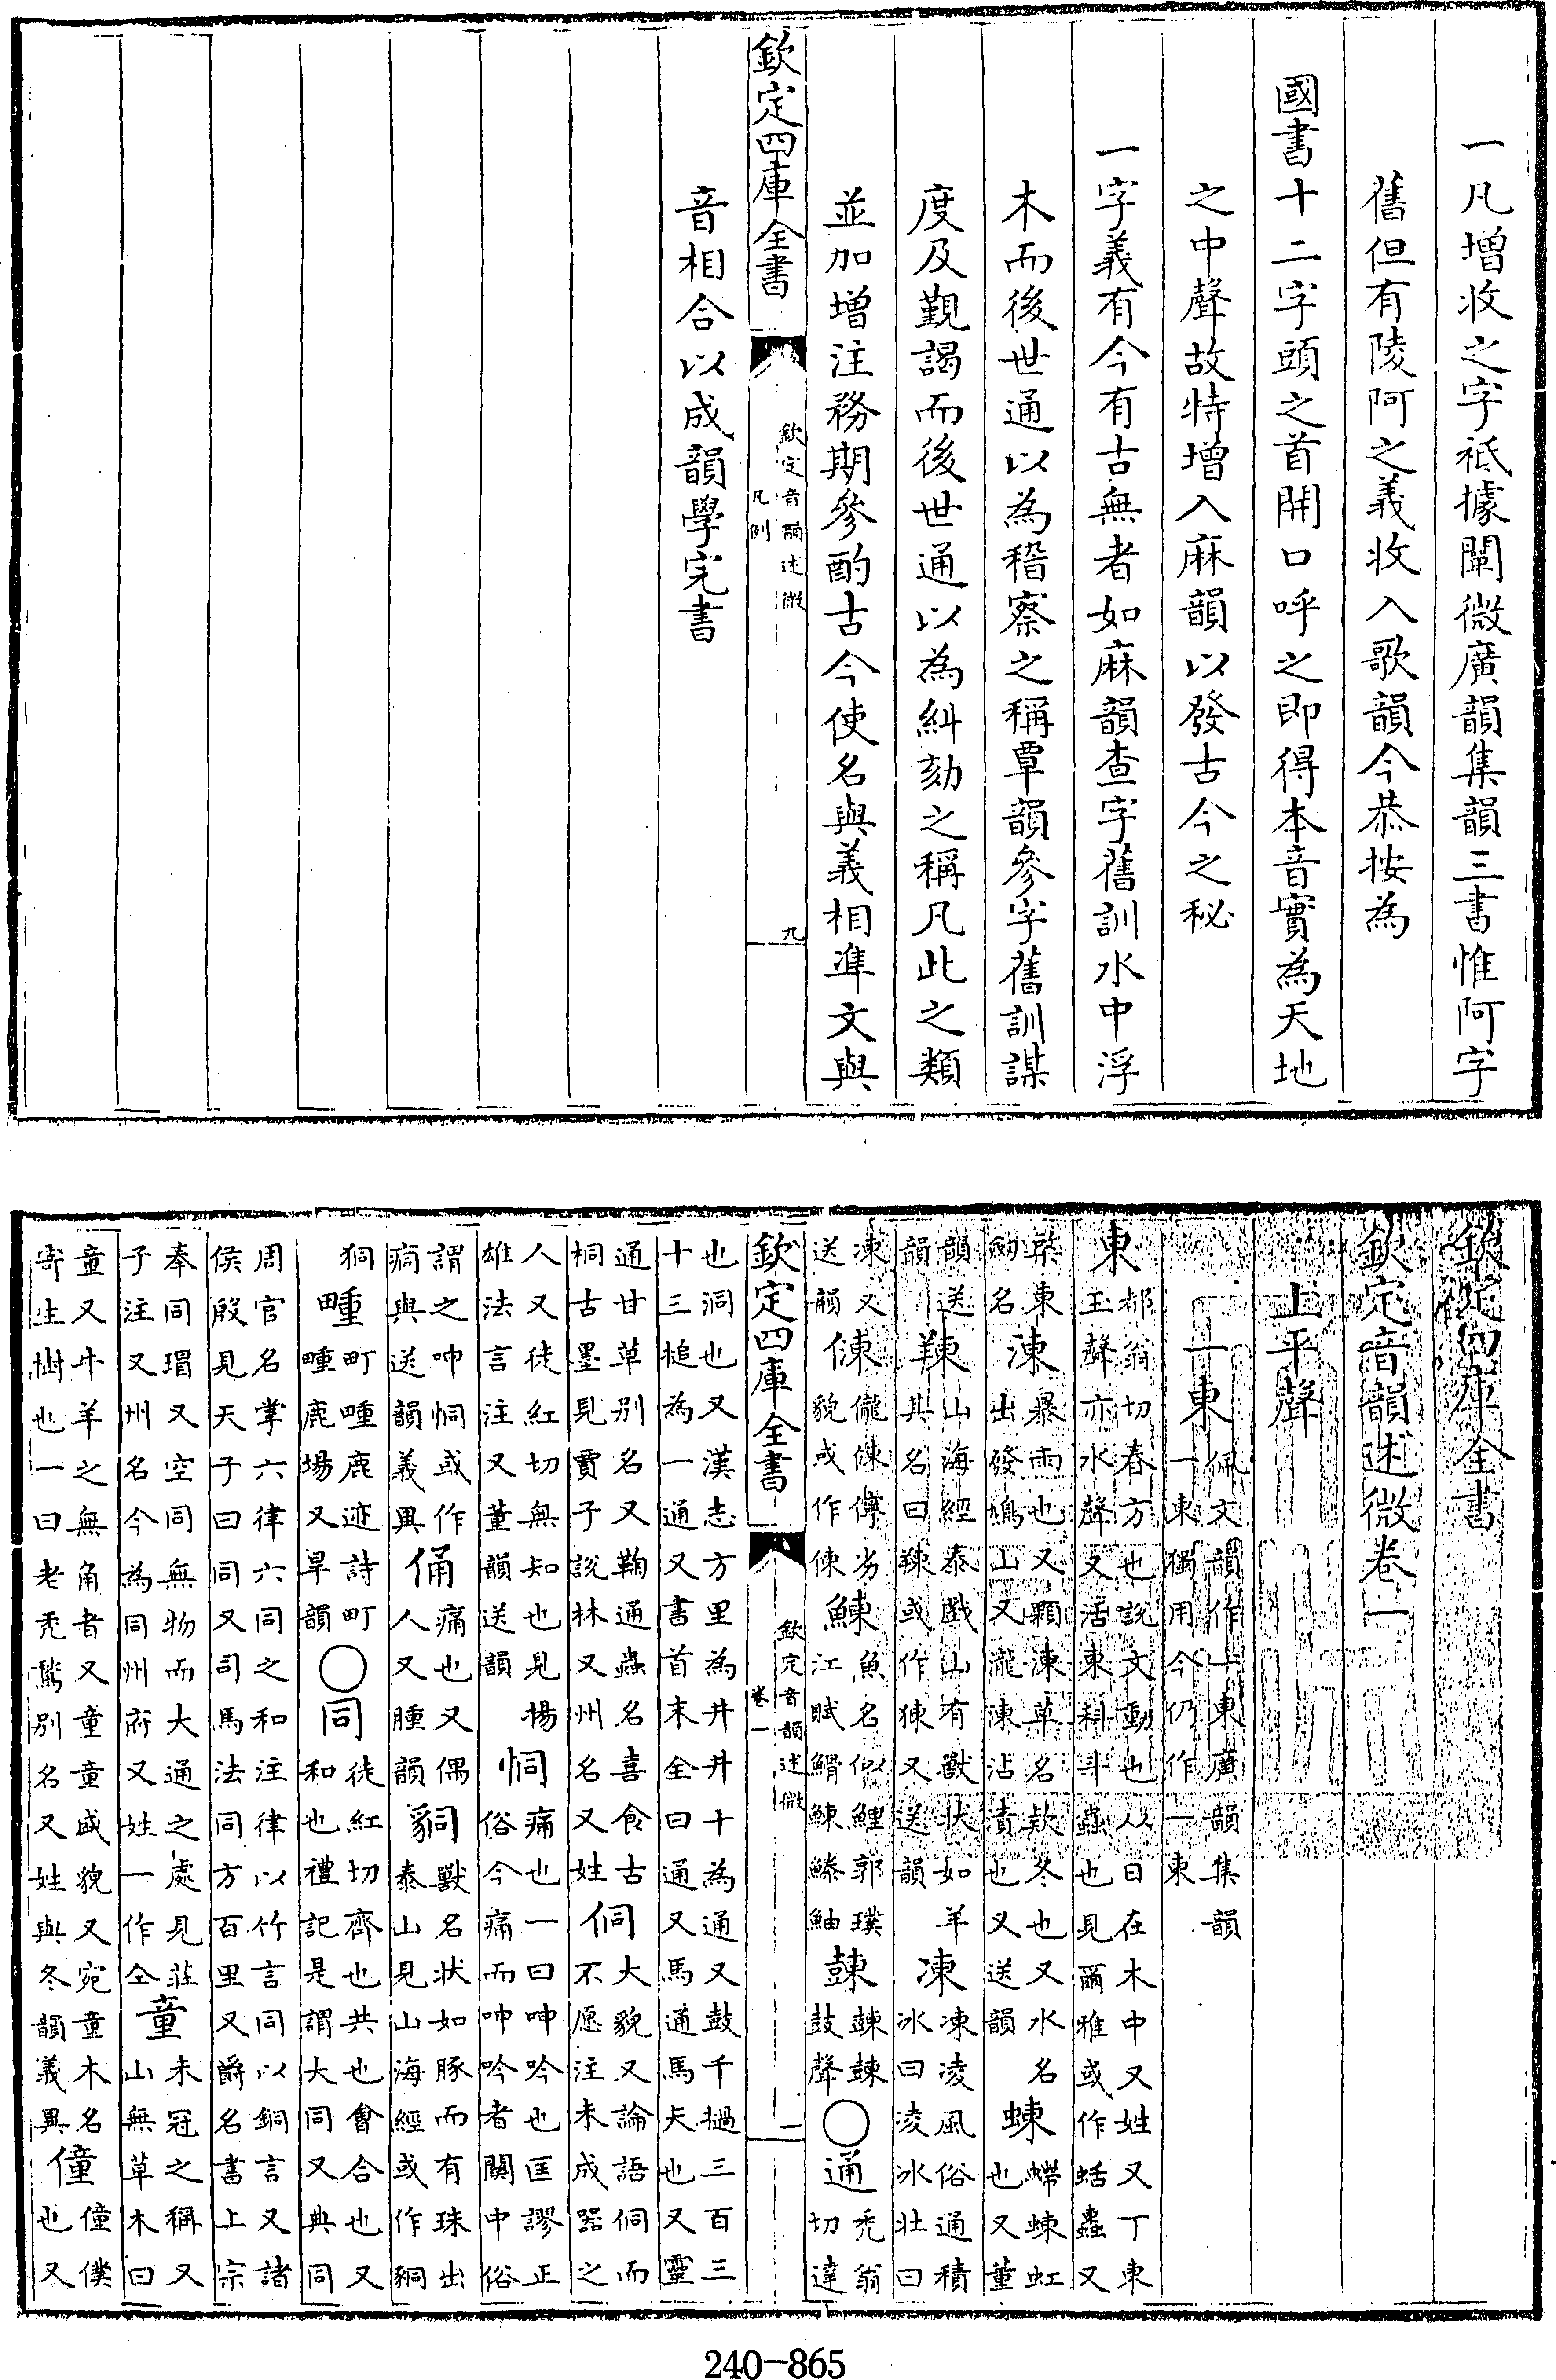 一凡增收之字祗據闡微廣韻集韻三書惟阿字
舊但有陵阿之義收入歌韻今恭按為
國書十二字頭之首開口呼之即得本音實為天地
之中聲故特增入麻韻以發古今之秘
一字義有今有古無者如麻韻查字舊訓水中浮
木而後世通以為稽察之稱覃韻參字舊訓謀
度及覲謁而後世通以為糾劾之稱凡此之類
並加增注務期參酌古今使名與義相準文與
欽定四庫全書
欽定音韻述微
凡例
九
音相合以成韻學完書
欽定四庫全書
欽定音韻述微卷一
上平聲
一東佩文韻作上東廣韻集韻一東獨用今仍作一東
東都翁切春方也說文動也从日在木中又姓又丁東玉聲亦水聲又活東科斗蟲也見爾雅或作蛞蠹又
東劒名涷暴雨也又顆涷草名款冬也又水名出發鳩山又瀧涷沾漬也又送韻蝀螮蝀虹也又董
韻送韻䍶山海經泰戲山有獸狀如羊其名曰䍶或作㹐又送韻凍凍凌風俗通積冰曰凌冰壯曰
凍又送韻倲儱倲儜劣貌或作倲鯟魚名似鯉郭璞江賦䱻鯟鰶鮋𪔜𪔜𪔜鼓聲○通禿翁切達
欽定四庫全書
欽定音韻述微
卷一
一
也洞也又漢志方里為井井十為通又鼓千撾三百三十三搥為一通又書首末全曰通又馬通馬矢也又靈
通甘草别名又鞠通蟲名喜食古桐古墨見賈子說林又州名又姓侗大貌又論語侗而不愿注未成器之
人又徒紅切無知也見揚雄法言注又董韻送韻恫痛也一曰呻吟也匡謬正俗今痛而呻吟者關中俗
謂之呻恫或作痌與送韻義異俑痛也又偶人又腫韻㣠獸名狀如豚而有珠出泰山見山海經或作
狪畽町畽鹿迹詩町畽鹿場又旱韻○同徒紅切齊也共也會合也又和也禮記是謂大同又典同
周官名掌六律六同之和注律以竹言同以銅言又諸侯殷見天子曰同又司馬法同方百里又爵名書上宗
奉同瑁又空同無物而大通之處見莊子注又州名今為同州府又姓一作仝童未冠之稱又山無草木曰
童又牛羊之無角者又童童盛貌又宛童木名寄生樹也一曰老禿鶖别名又姓與冬韻義異僮僮僕也又
240-865